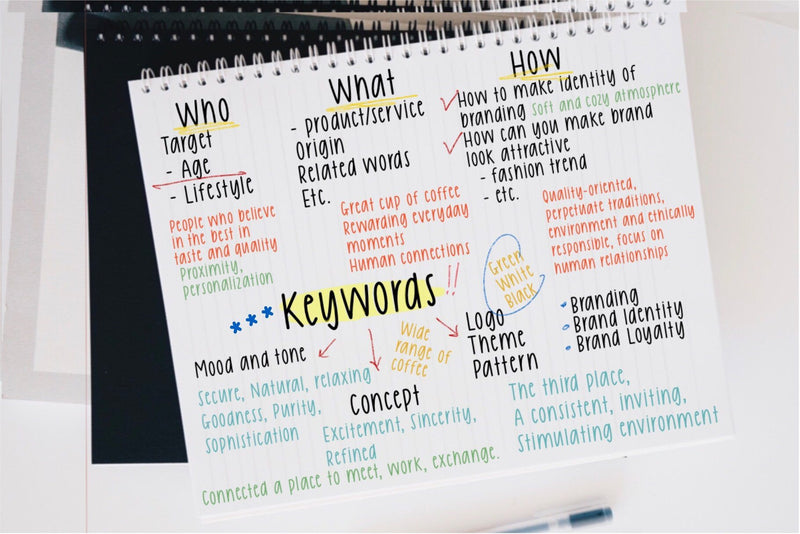 Who
Target
- Age
- Lifestyle
People who believe
in the best in
taste and quality
Proximity,
personalization
What
- product/service
Origin
Related words
Etc.
Great cup of coffee
Rewarding everyday
moments
Human connections
How
How to make identity of
branding soft and cozy atmosphere
How can you make brand
look attractive
- fashion trend
- etc.
Quality-oriented,
perpetuate traditions,
environment and ethically
responsible, focus on
human relationships
Green
White
Black
*** Keywords !!
Mood and tone
Secure, Natural, relaxing
Goodness, Purity,
sophistication
Wide
range of
coffee
Concept
Excitement, Sincerity,
Refined
Logo
Theme
Pattern
Branding
Brand Identity
Brand Loyalty
The third place,
A consistent, inviting,
Stimulating environment
Connected a place to meet, work, exchange.